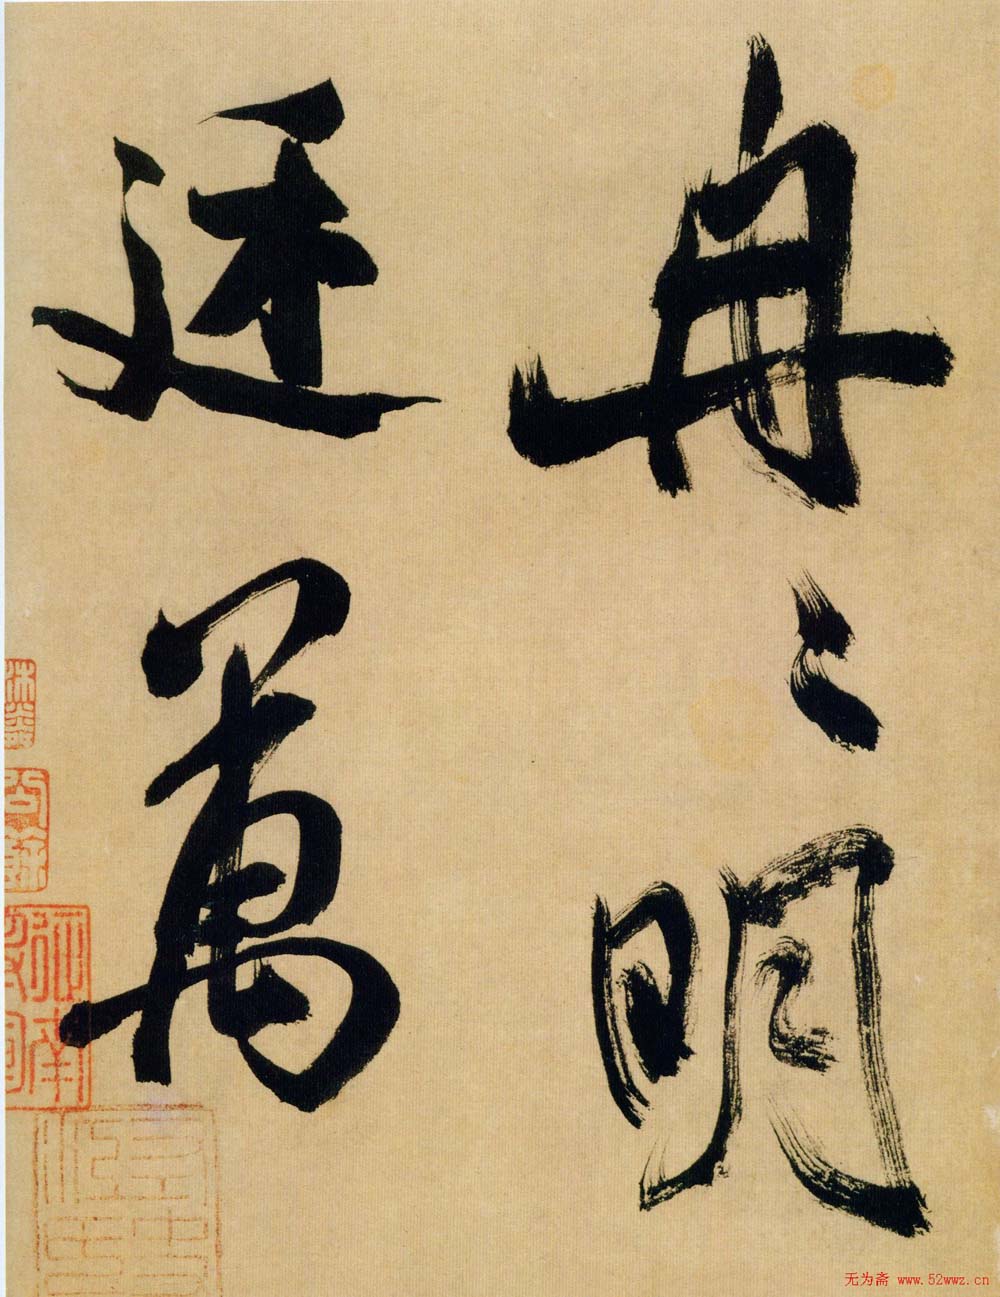 冉〻明
廷萬
无为斋 www.52wwz.cn